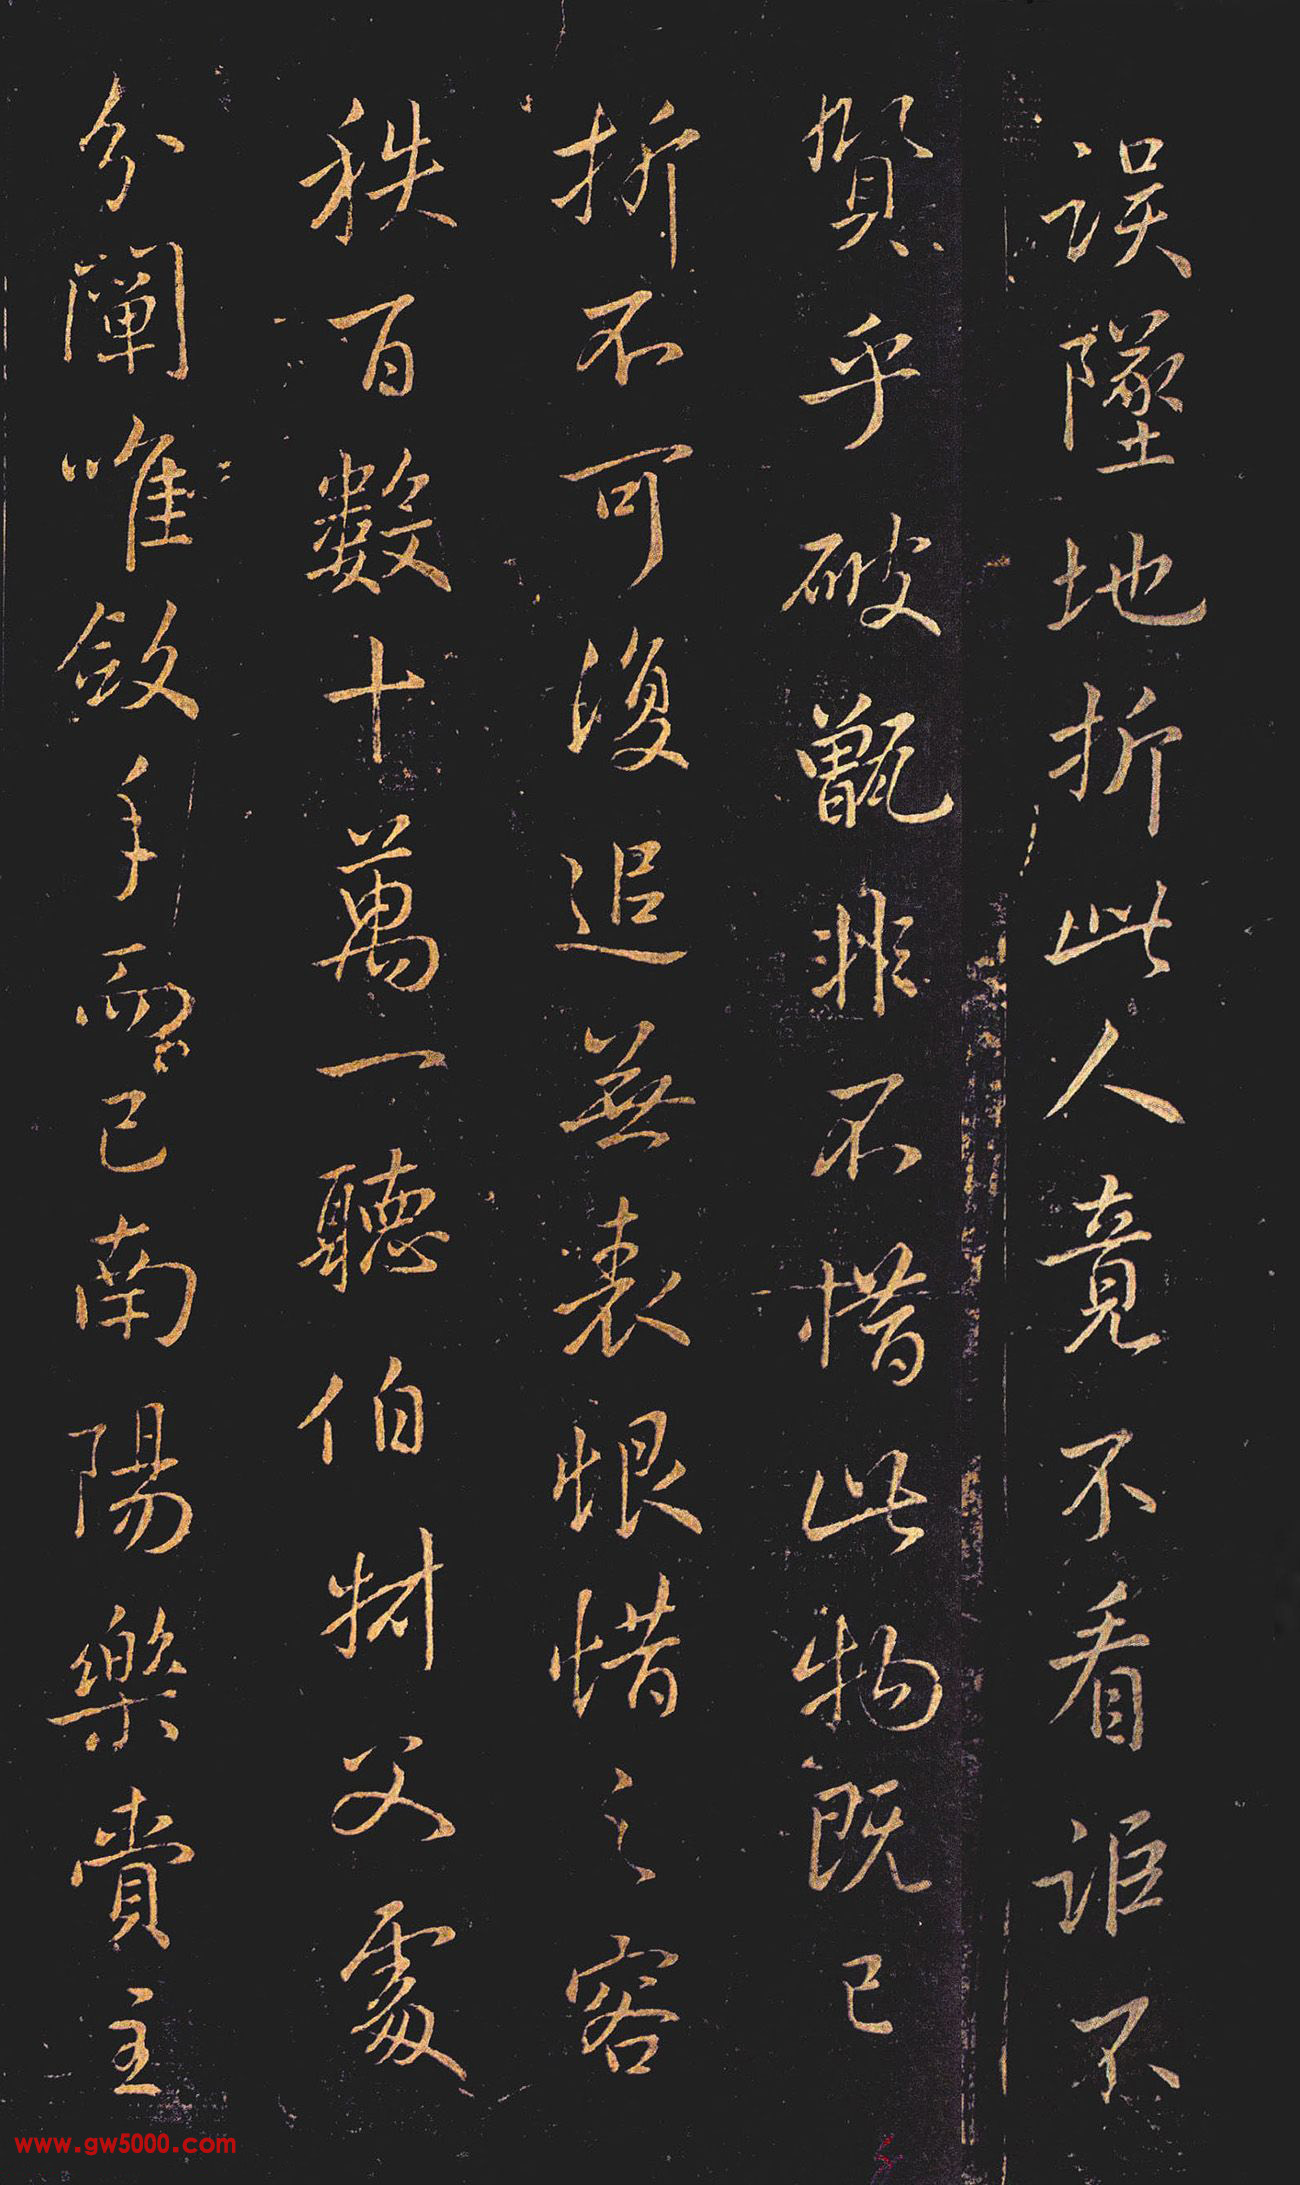 誤墜地折此人竟不看詎不
賢乎破甑非不惜此物既已
折不可復追無表恨惜之容
秩百數十萬一聽伯材父處
分闡唯斂手而已南陽樂賣主
www.gw5000.com